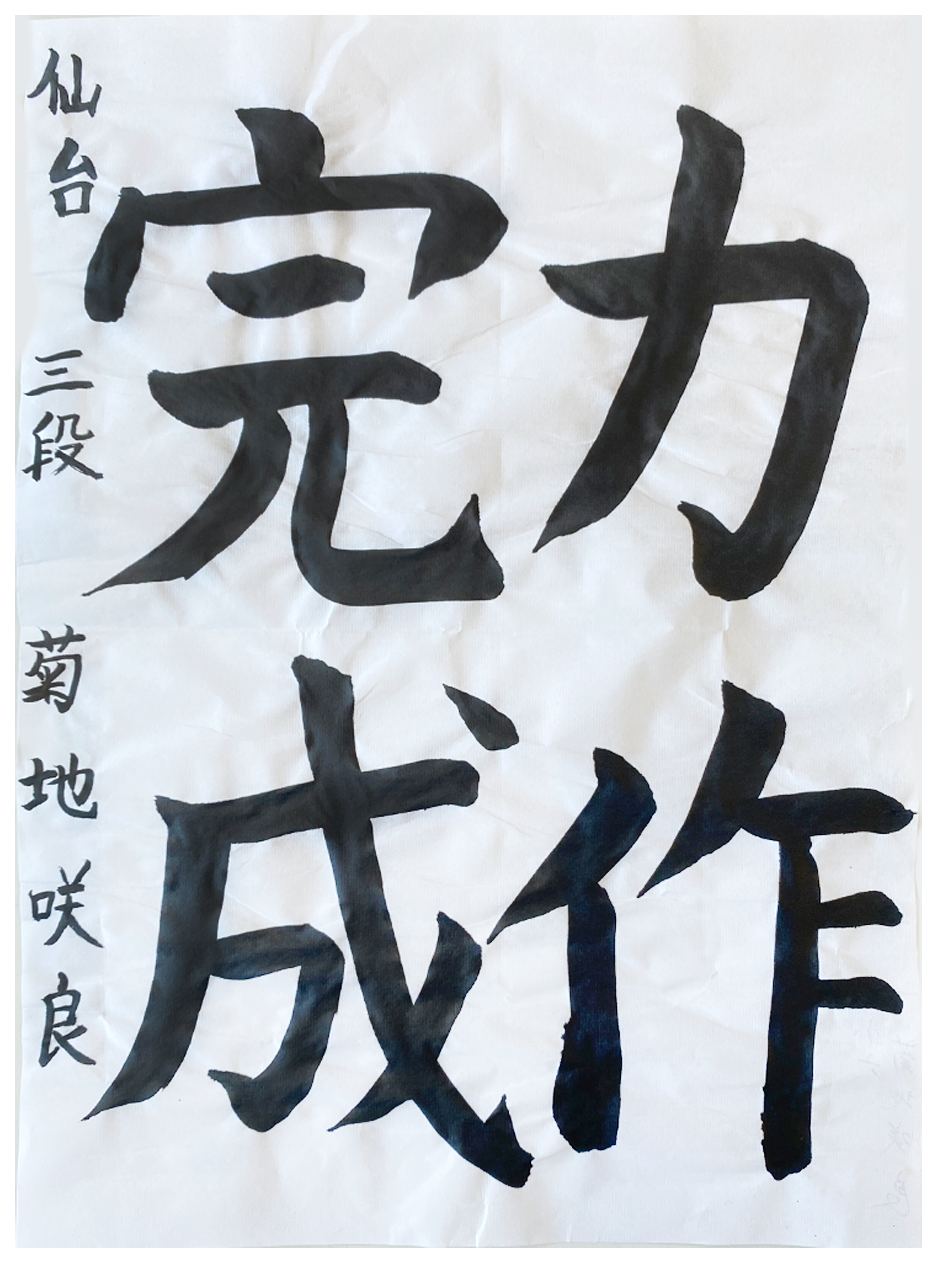 力作
完成
仙台 三段 菊地咲良